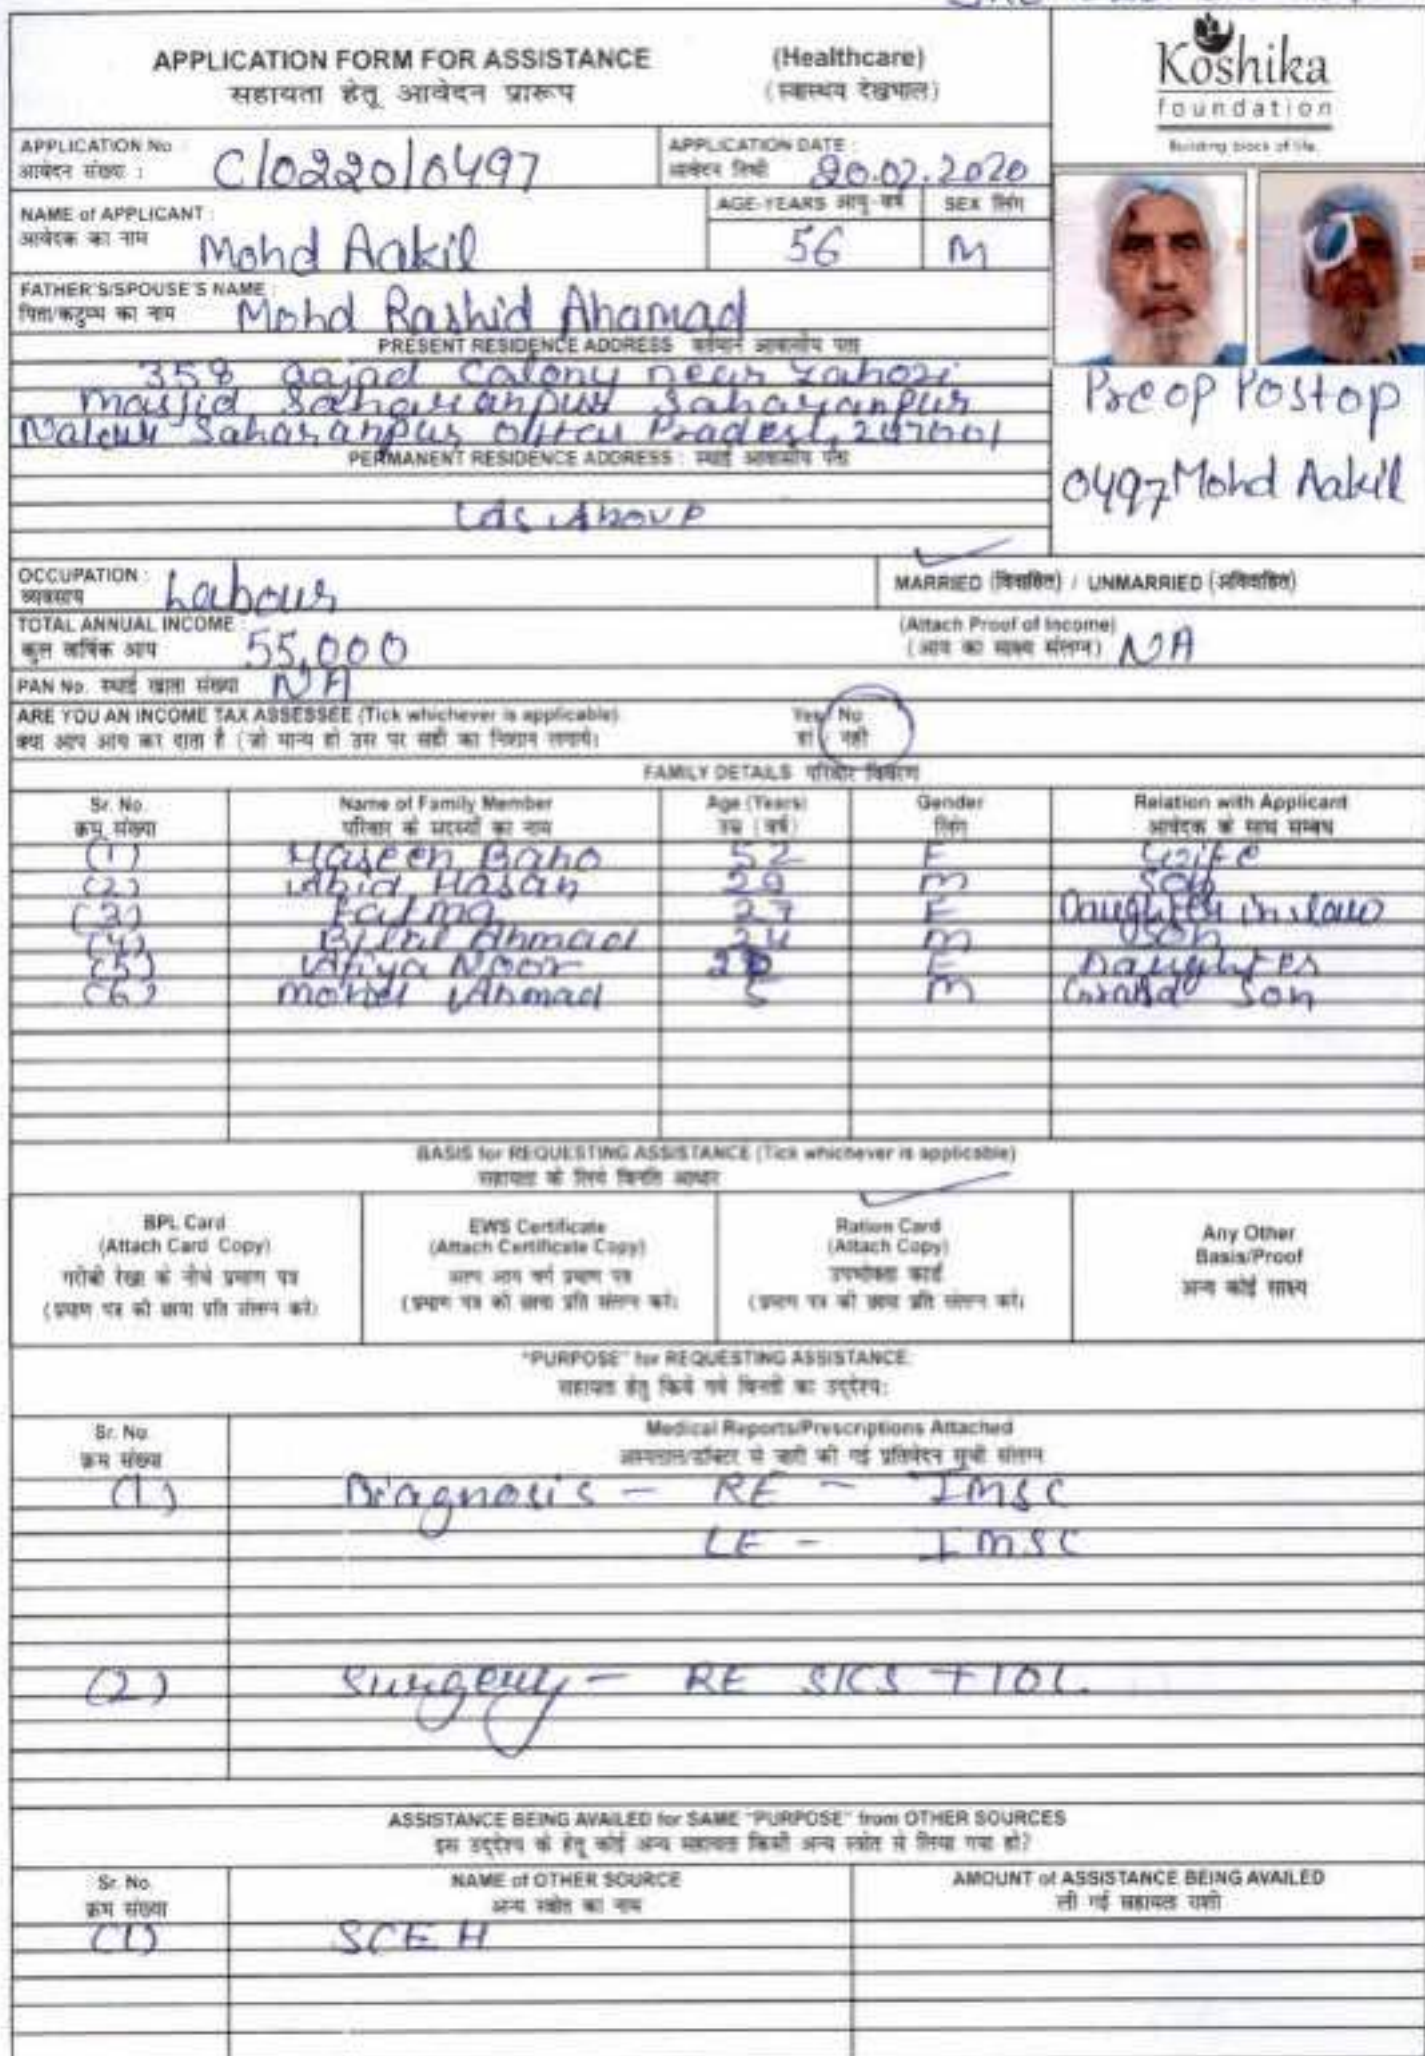 APPLICATION FORM FOR ASSISTANCE (Healthcare)
सहायता हेतू आवेदन प्रारूप (स्वास्थय देखभाल)
Koshika
foundation
Building block of life.
APPLICATION No :
आवेदन संख्या : C/0220/0497
APPLICATION DATE :
आवेदन तिथी 20.02.2020
NAME of APPLICANT :
आवेदक का नाम Mohd Aakil
AGE-YEARS आयु-वर्ष 56
SEX लिंग M
FATHER'S/SPOUSE'S NAME :
पिता/कटुम्ब का नाम Mohd Rashid Ahamad
PRESENT RESIDENCE ADDRESS वर्तमान आवासीय पता
358 aajad Calony near
Masjid Saharanpur Saharanpur
Saharanpur Pradesh
PERMANENT RESIDENCE ADDRESS : स्थाई आवासीय पता
As Above
Preop Postop
0497 Mohd Aakil
OCCUPATION :
व्यवसाय Labour
MARRIED (विवाहित) / UNMARRIED (अविवाहित)
TOTAL ANNUAL INCOME :
कुल वार्षिक आय 55,000
(Attach Proof of Income)
(आय का साक्ष्य संलग्न) NA
PAN No. स्थाई खाता संख्या NA
ARE YOU AN INCOME TAX ASSESSEE (Tick whichever is applicable) Yes / No
क्या आप आय कर दाता है (जो मान्य हो उस पर सही का निशान लगाये) हां / नहीं
FAMILY DETAILS परिवार विवरण
Sr. No. Name of Family Member Age (Years) Gender Relation with Applicant
क्रम संख्या परिवार के सदस्यों का नाम उम्र (वर्ष) लिंग आवेदक के साथ सम्बंध
(1) Haseen Bano 52 F Wife
(2) Hasan 29 M Son
(3) Fatma 27 F Daughter in law
(4) Bilal Ahmad 24 M Son
(5) Noor F Daughter
(6) Ahmad 5 M Grand Son
BASIS for REQUESTING ASSISTANCE (Tick whichever is applicable)
सहायता के लिये विनति आधार
BPL Card
(Attach Card Copy)
गरीबी रेखा के नीचे प्रमाण पत्र
(प्रमाण पत्र की छाया प्रति संलग्न करे)
EWS Certificate
(Attach Certificate Copy)
अल्प आय वर्ग प्रमाण पत्र
(प्रमाण पत्र की छाया प्रति संलग्न करे)
Ration Card
(Attach Copy)
उपभोक्ता कार्ड
(प्रमाण पत्र की छाया प्रति संलग्न करे)
Any Other
Basis/Proof
अन्य कोई साक्ष्य
"PURPOSE" for REQUESTING ASSISTANCE:
सहायता हेतु किये गये विनती का उद्देश्य:
Sr. No. Medical Reports/Prescriptions Attached
क्रम संख्या अस्पताल/डॉक्टर से जारी की गई प्रतिवेदन सूची संलग्न
(1) Diagnosis - RE - IMSC
LE - IMSC
(2) Surgery - RE SICS + IOL
ASSISTANCE BEING AVAILED for SAME "PURPOSE" from OTHER SOURCES
इस उद्देश्य के हेतू कोई अन्य सहायता किसी अन्य स्त्रोत से लिया गया हो?
Sr. No. NAME of OTHER SOURCE AMOUNT of ASSISTANCE BEING AVAILED
क्रम संख्या अन्य स्त्रोत का नाम ली गई सहायता राशी
(1) SCEH